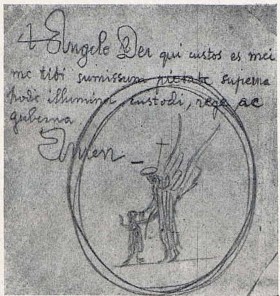 Angele Dei qui custos es mei
me tibi comissum pietate superna
hodie illumina custodi, rege ac
guberna
Amen